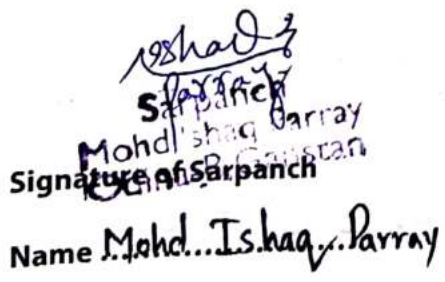 Ishaq
Parray
Sarpanch
Mohd Ishaq Parray
Signature of Sarpanch
Name Mohd...Ishaq...Parray